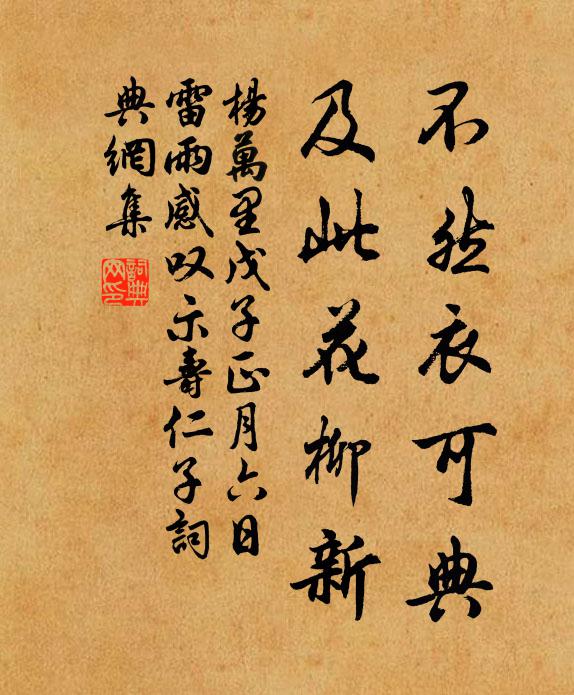 不然衣可典
及此花柳新
楊萬里戊子正月六日
雷雨感叹示壽仁子詞
典網集
詞典
网印